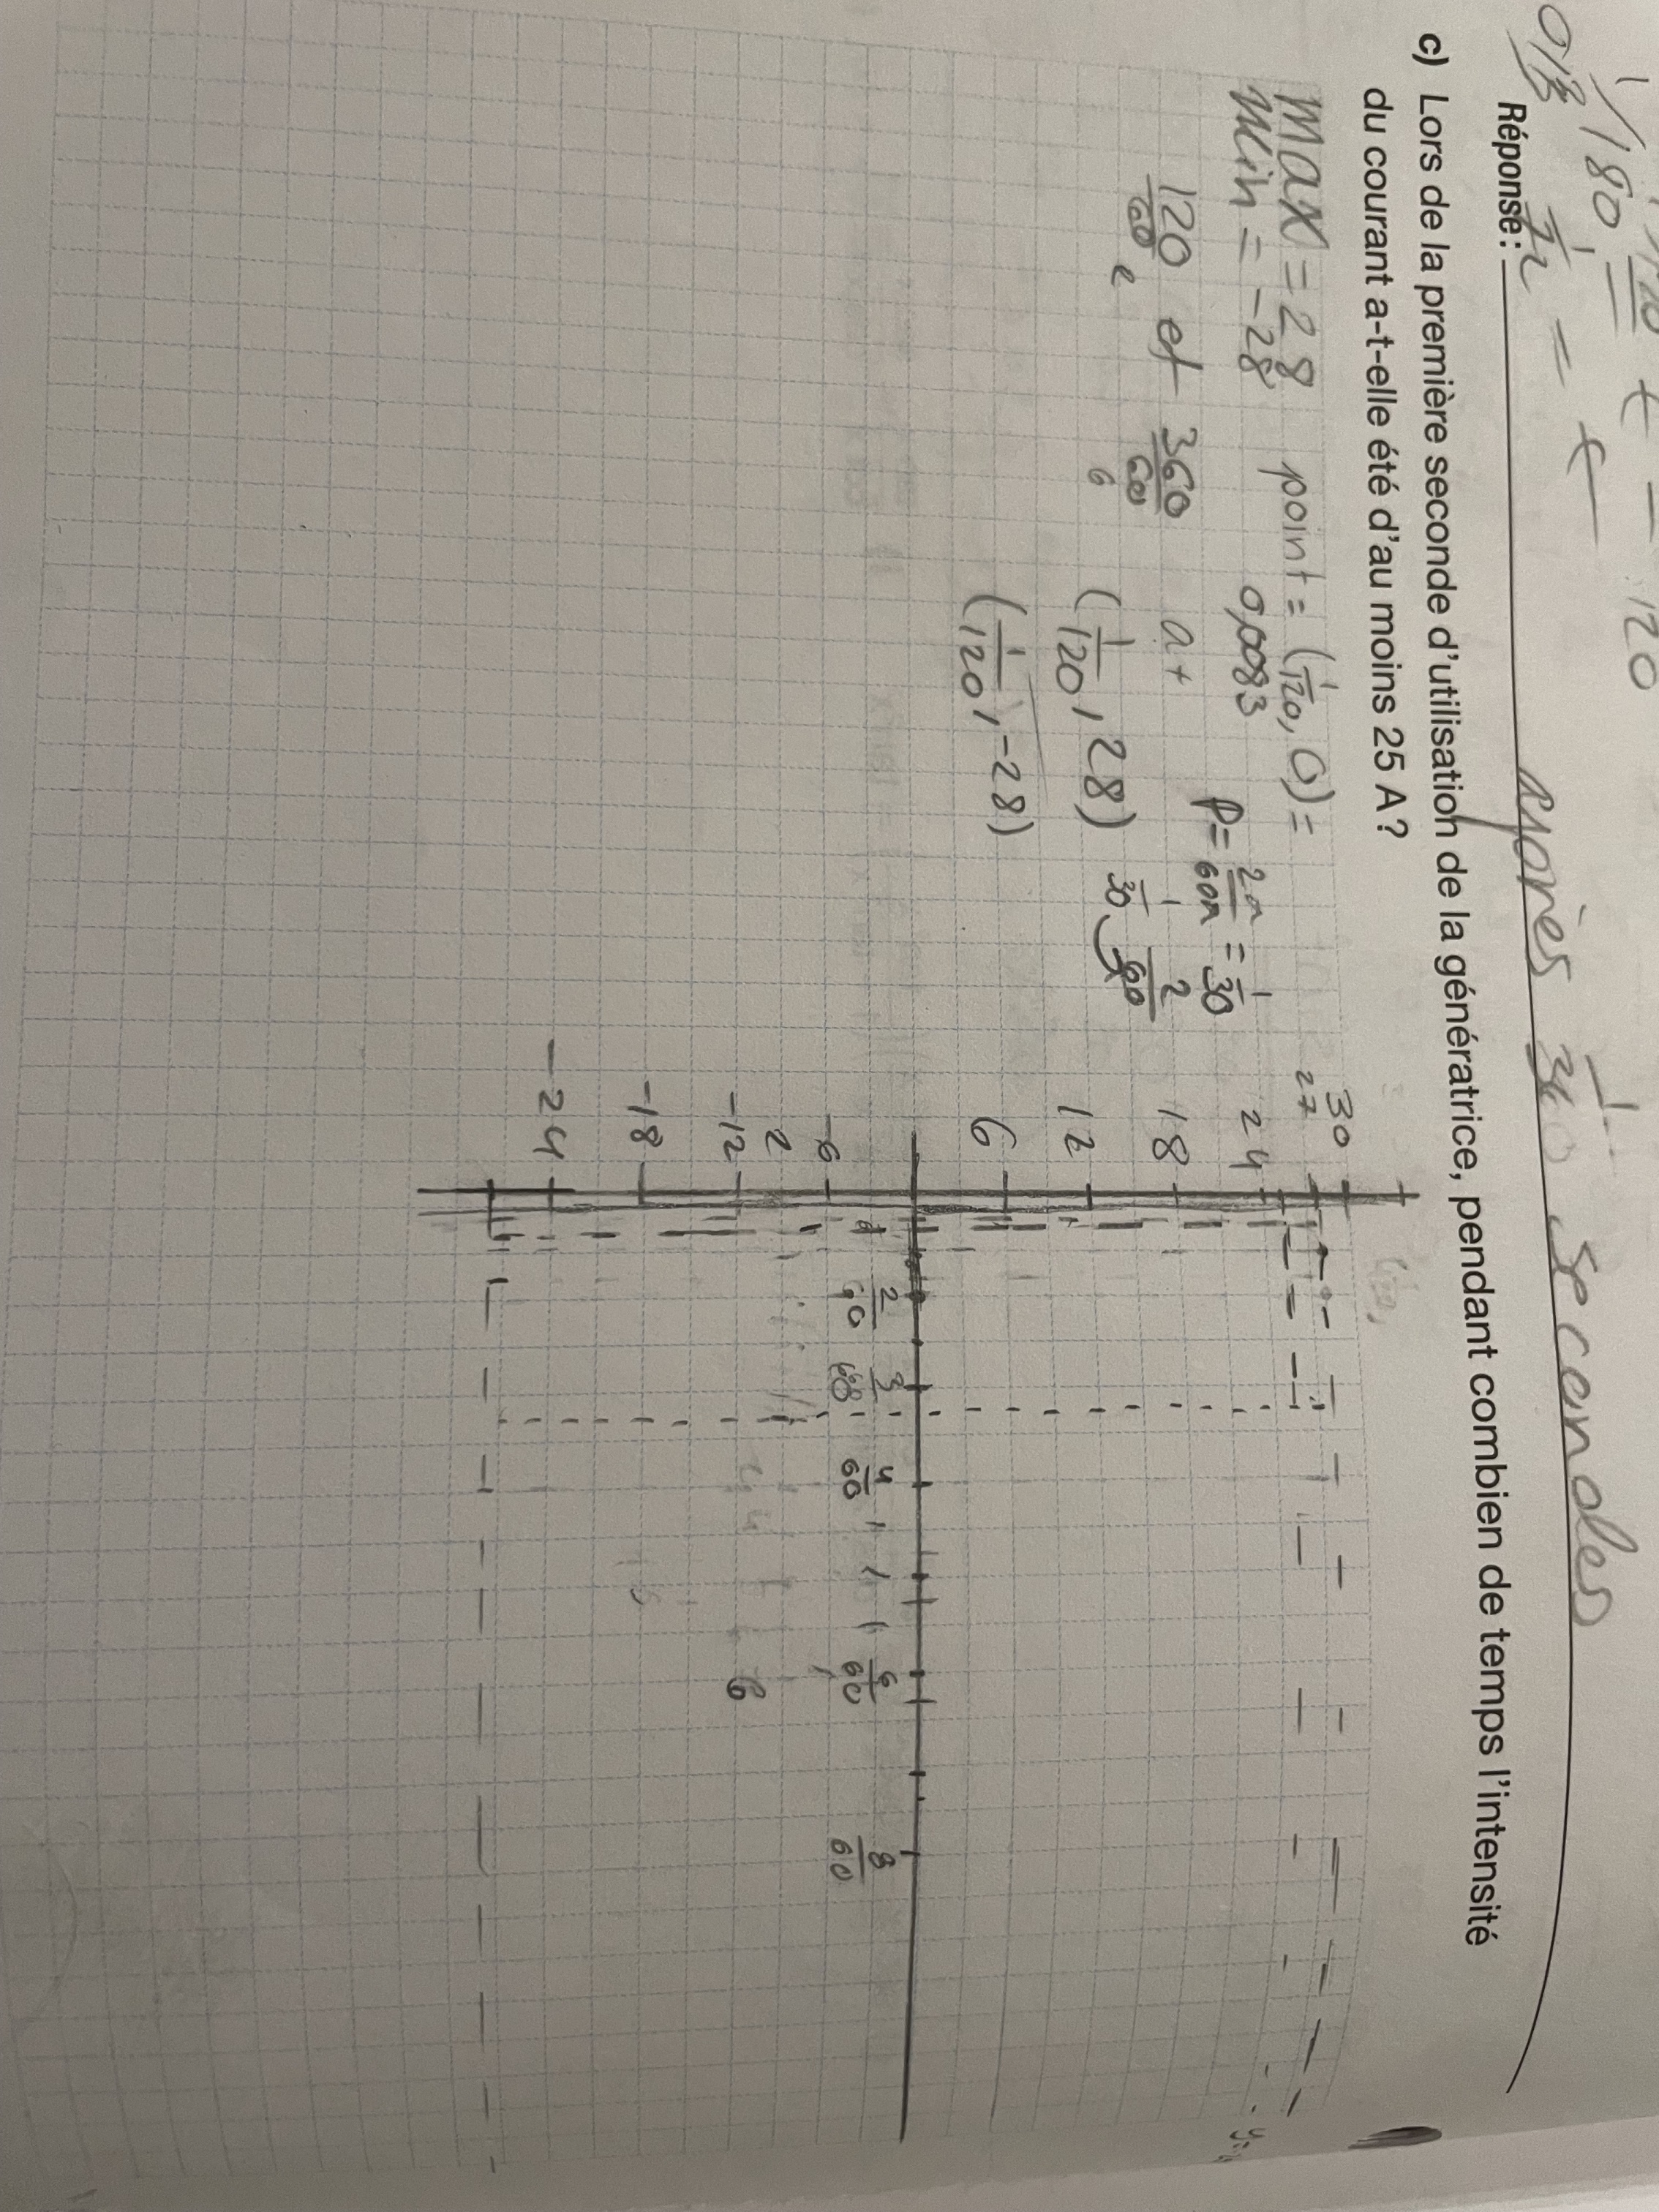 1/180
120
Réponse :
après
secondes
c) Lors de la première seconde d'utilisation de la génératrice, pendant combien de temps l'intensité
du courant a-t-elle été d'au moins 25 A ?
max = 28 point = (1/120, 0) =
min = -28 0,0083
P = 2π/60π = 1/30
120/60 et 360/60
2 6
1/30 2/60
(1/120, 28)
(1/120, -28)
30
27
24
18
12
6
-6
2
-12
-18
-24
2/60 3/60 4/60 6/60 8/60
6